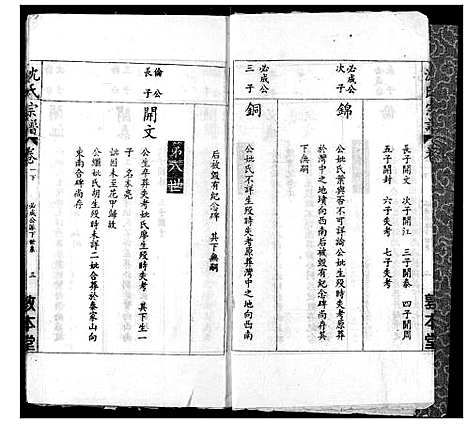 沈氏宗譜
卷
敦本堂
長子開文 次子開江 三子開泰 四子開周
五子開封 六子失考 七子失考
必成公
次子
錦
公妣氏葉與否不可詳論公妣生歿時失考原葬
於灣中之地墳向西南后被毀有紀念碑尚存其
下無嗣
必成公
三子
銅
公妣氏不詳生歿時失考原葬灣中之地向西南
后被毀有紀念碑 其下無嗣
第八世
倫公
長子
開文
公生卒葬失考妣氏廖生歿時失考 其下生一
子 名本亮
訛因未至花甲歸故
公繼妣氏胡生歿時未詳二妣合葬於秦家山向
東南合碑尚存
沈氏宗譜
卷一下
必成公派下世系
三
敦本堂